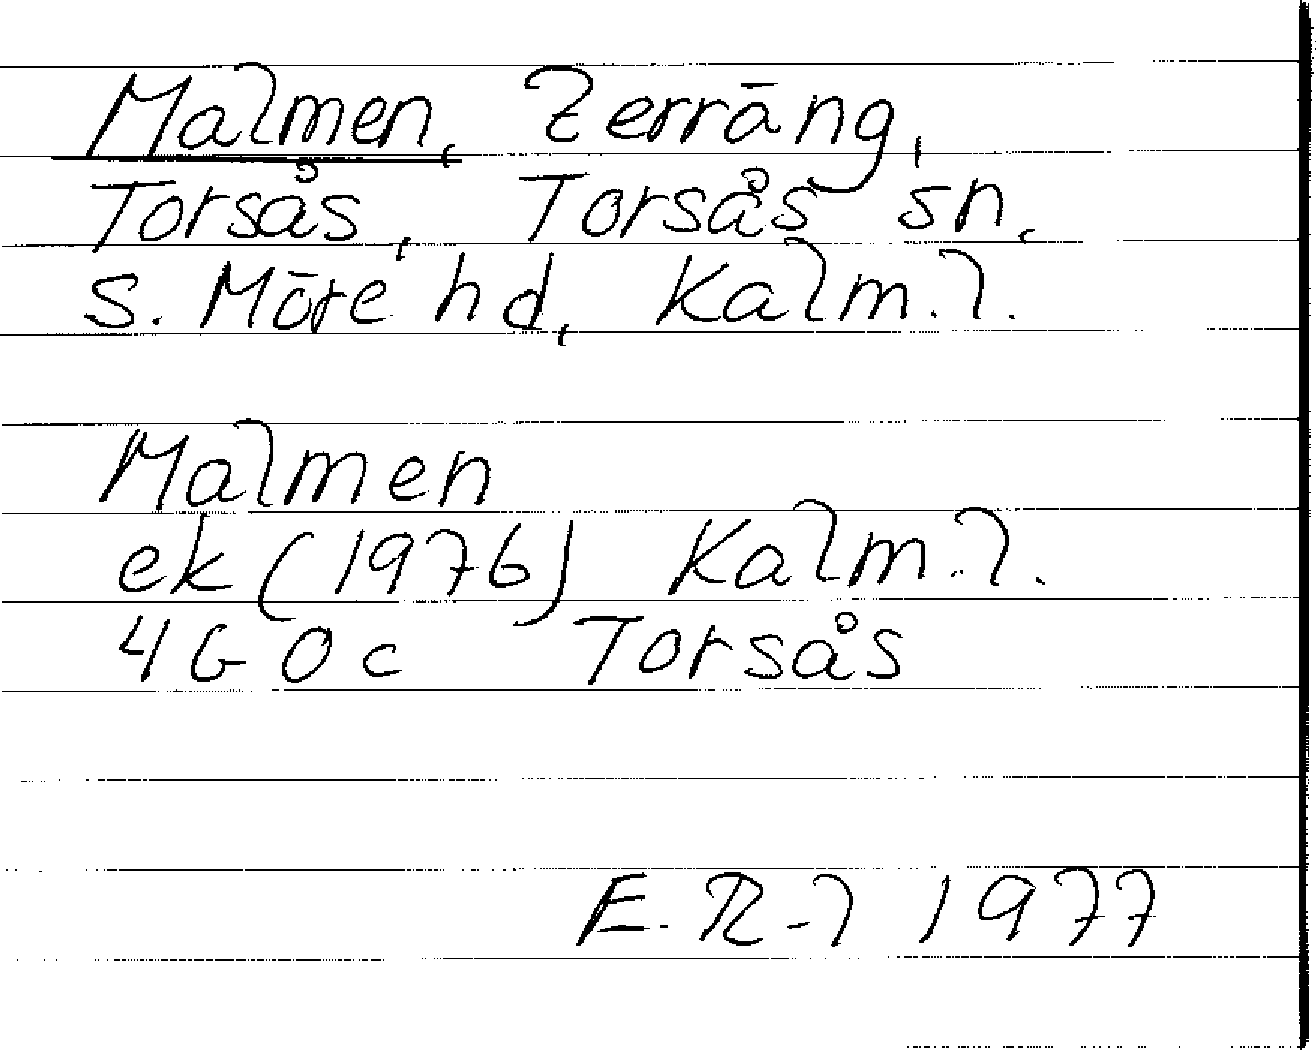 Malmen, terräng,
Torsås, Torsås sn,
S. Möre hd, Kalm. l.
Malmen
ek (1976) Kalm. l.
4G 0c Torsås
E. R-l 1977